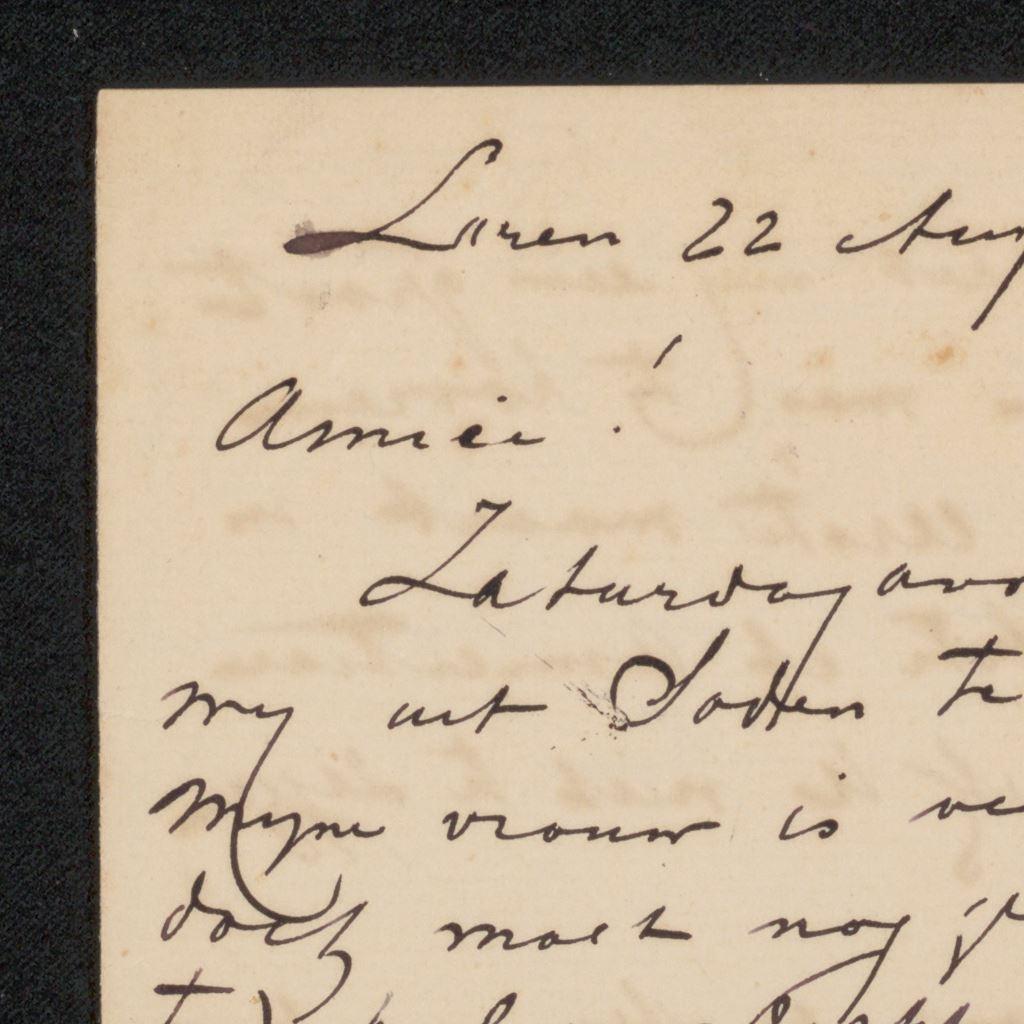 Laren 22 Aug
Amice!
Zaturdagavo
my uit Soden te
Myne vrouw is ve
doch moet nog